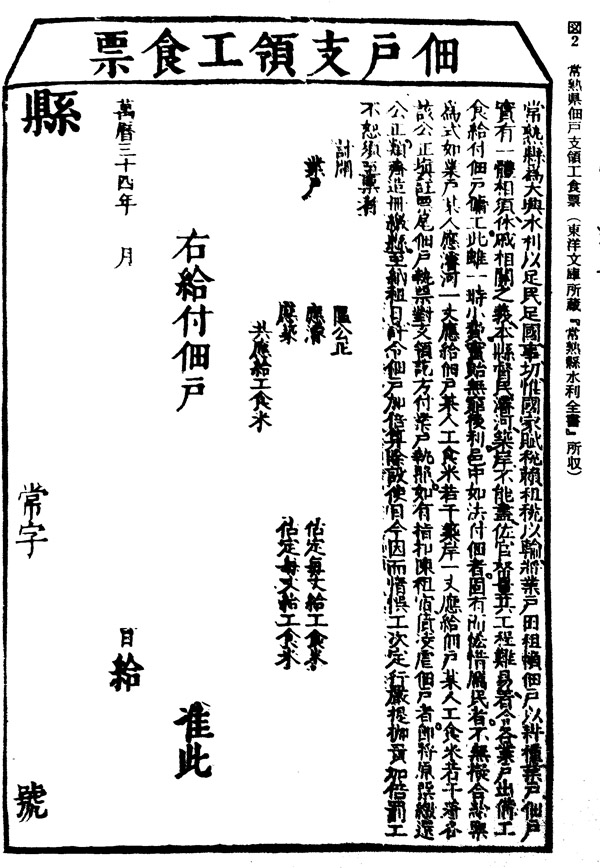 図2 常熟県佃戸支領工食票（東洋文庫所蔵『常熟縣水利全書』所収）
佃戶支領工食票
常熟縣為大興水利以足民足國事切惟國家賦稅賴租稅以輸將業戶田租憑佃戶以耕種業戶佃戶
實有一體相須休戚相關之義本縣督民濬河築岸不能盡佐官帑量其工程難易著令各業戶出備工
食給付佃戶傭工此雖一時小費實貽無窮後利邑中如法付佃者固有所悋惜厲民者不無擬合給票
為式如業戶某人應濬河一丈應給佃戶某人工食米若干築岸一丈應給佃戶某人工食米若干著各
該公正填註票尾佃戶執票對支領訖方付業戶執照如有捎扣陳租宿債凌虐佃戶者即將原票繳還
公正類齊造冊繳縣至納租日計令佃戶加倍算除敢使目今因而悞工決定行嚴提枷責加倍罰工
不恕須至票者
計開
業戶 區公正
應濬 估定每丈給工食米
應築 估定每丈給工食米
共應給工食米
右給付佃戶 准此
萬曆三十四年 月 日給
縣 常字 號